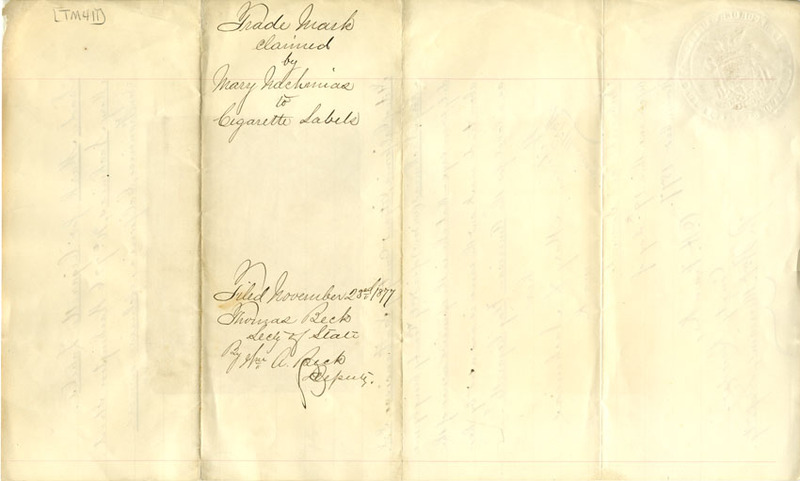 [TM411]
Trade Mark
claimed
by
Mary Nachmias
to
Cigarette Labels
Filed November 23rd 1877
Thomas Beck
Secty of State
By Wm A. Beck
Deputy.